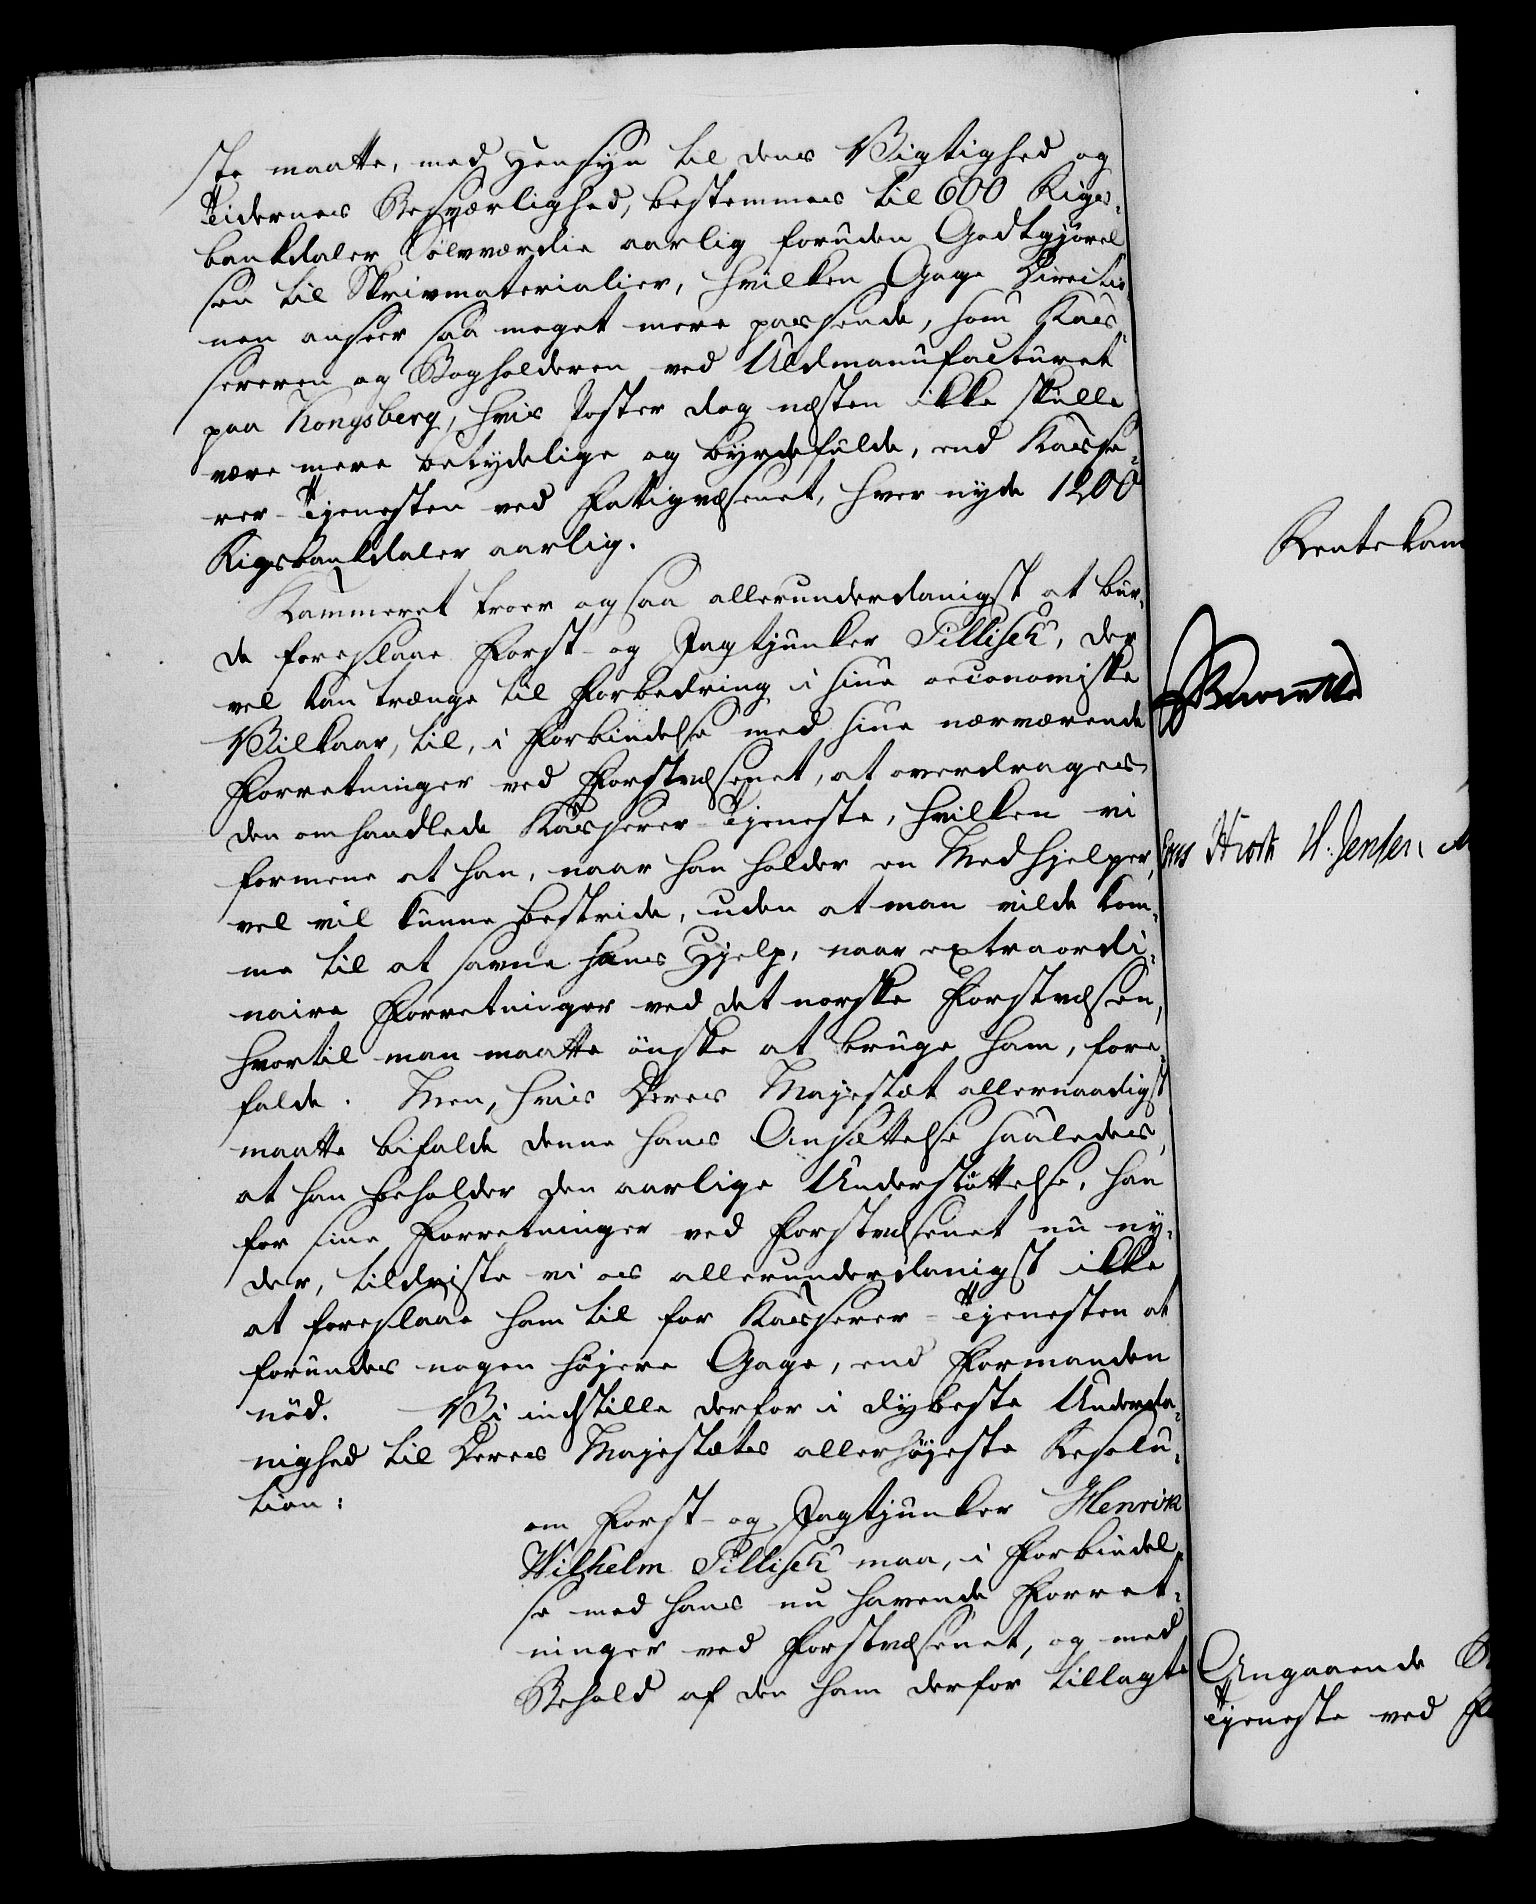 ste maatte, med Hensyn til dens Vigtighed og
Tidernes Besværlighed, bestemmes til 600 Rigs-
bankdaler Sölvværdie aarlig foruden Godtgjörel
sen til Skrivmaterialier, hvilken Gage Directio-
nen anseer saa meget mere passende, som Kas-
sereren og Bogholderen ved Uldmanufacturet
paa Kongsberg, hvis Poster dog næsten ikke skulle
være mere betydelige og byrdefulde, end Kasse-
rer-Tjenesten ved Fattigvæsenet, hver nyde 1200
Rigsbankdaler aarlig.
Kammeret troer ogsaa allerunderdanigst at bur-
de foreslaae Forst- og Jagtjunker Tillisch, der
vel kan trænge til Forbedring i sine oeconomiske
Vilkaar, til, i Forbindelse med sine nærværende
Forretninger ved Forstvæsenet, at overdrages
den omhandlede Kasserer-Tjeneste, hvilken vi
formene at han, naar han holder en Medhjelper,
vel vil kunne bestride, uden at man vilde kom-
me til at savne hans Hjelp, naar extraordi-
naire Forretninger ved det norske Forstvæsen,
hvortil man maatte önske at bruge ham, fore-
falde. Men, hvis Deres Majestæt allernaadigst
maatte bifalde denne hans Ansættelse saaledes,
at han beholder den aarlige Understöttelse, han
for sine Forretninger ved Forstvæsenet nu ny-
der, tildriste vi os allerunderdanigst ikke
at foreslaae ham til for Kasserer-Tjenesten at
forundes nogen höjere Gage, end Formanden
nöd. Vi indstille derfor i dybeste Underda-
nighed til Deres Majestæts allerhöjeste Resolu-
tion:
om Forst- og Jagtjunker Henrik
Wilhelm Tillisch maa, i Forbindel-
se med hans nu havende Forret-
ninger ved Forstvæsenet, og med
Behold af den ham derfor tillagte
Rentekam
H. Jensen
Angaaende
Tjeneste ved